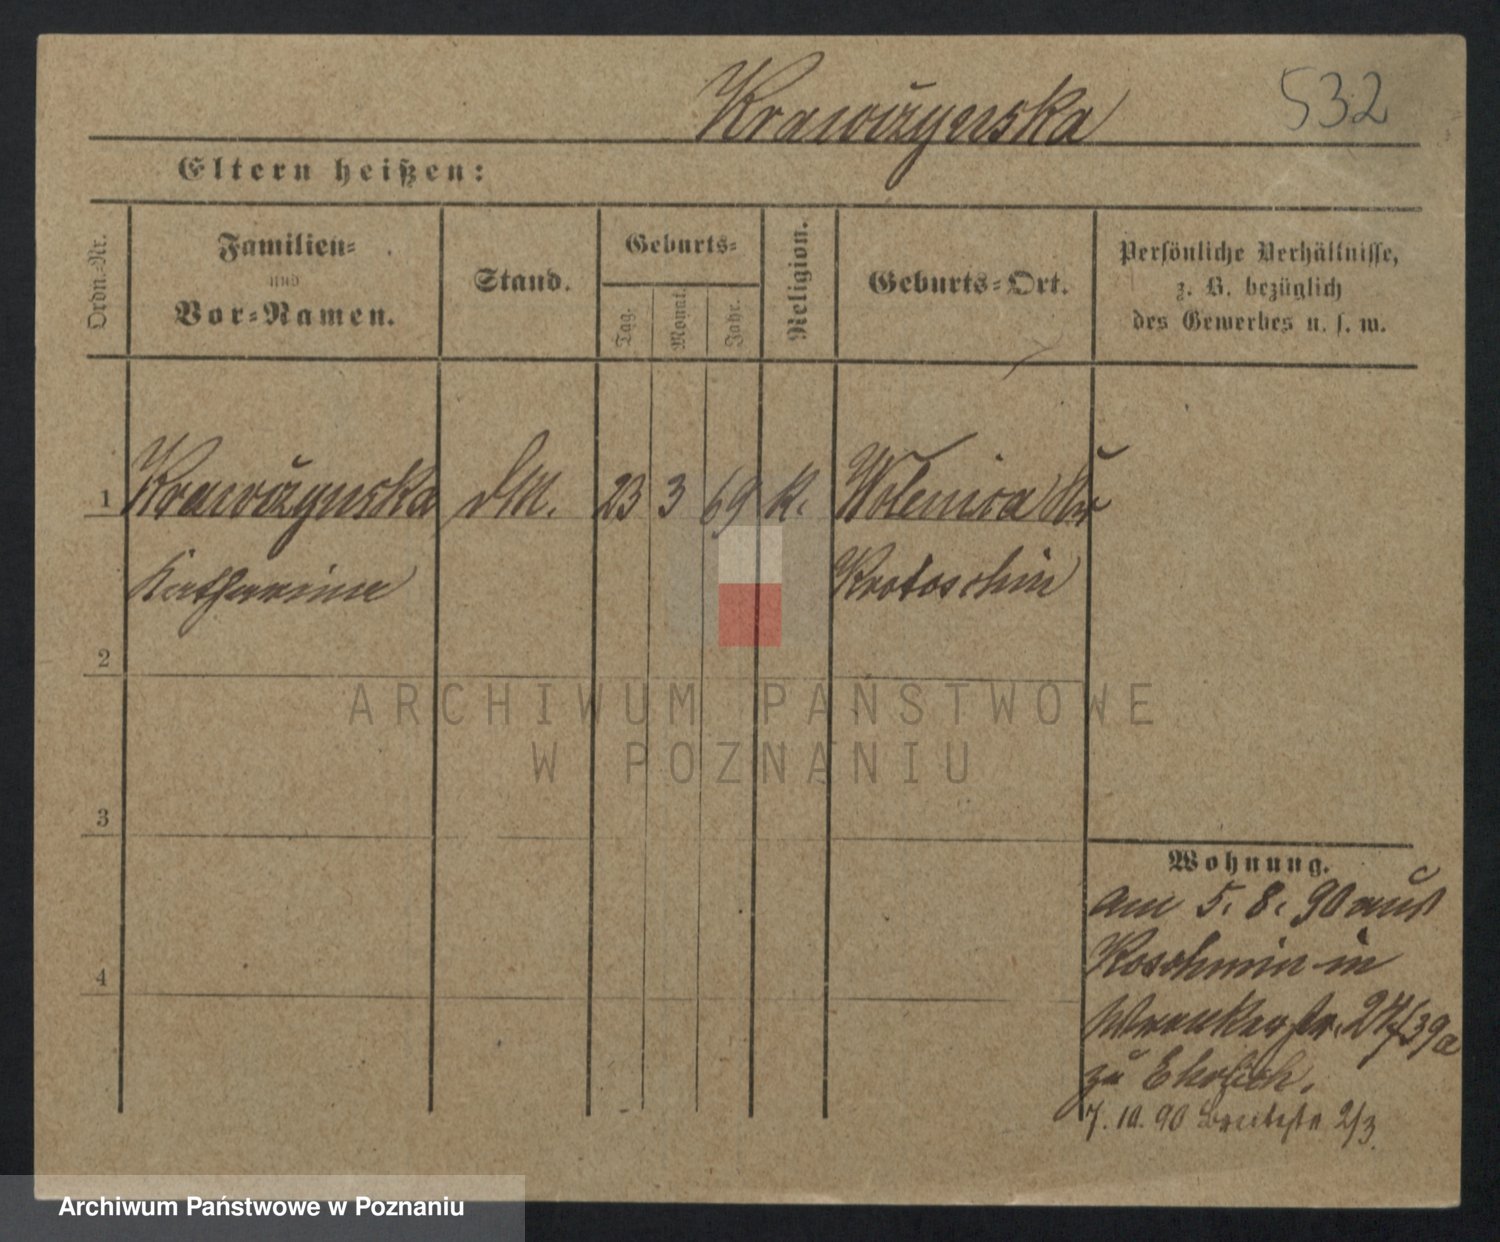 Krawczynska 532
Eltern heißen:
Ordn.-Nr.
Familien-
und
Vor-Namen.
Stand.
Geburts-
Tag.
Monat.
Jahr.
Religion.
Geburts-Ort.
Persönliche Verhältnisse,
z. B. bezüglich
des Gewerbes u. s. w.
1 Krawczynska 23 3 69 K. Wolenica Kr
Katharina Krotoschin
2
3
4
Wohnung.
am 5. 8. 90 aus
Koschmin in
Wronkerstr. 24/39a
zu Ehrlich.
7. 10. 90 Breitestr 2/3
ARCHIWUM PAŃSTWOWE
W POZNANIU
Archiwum Państwowe w Poznaniu